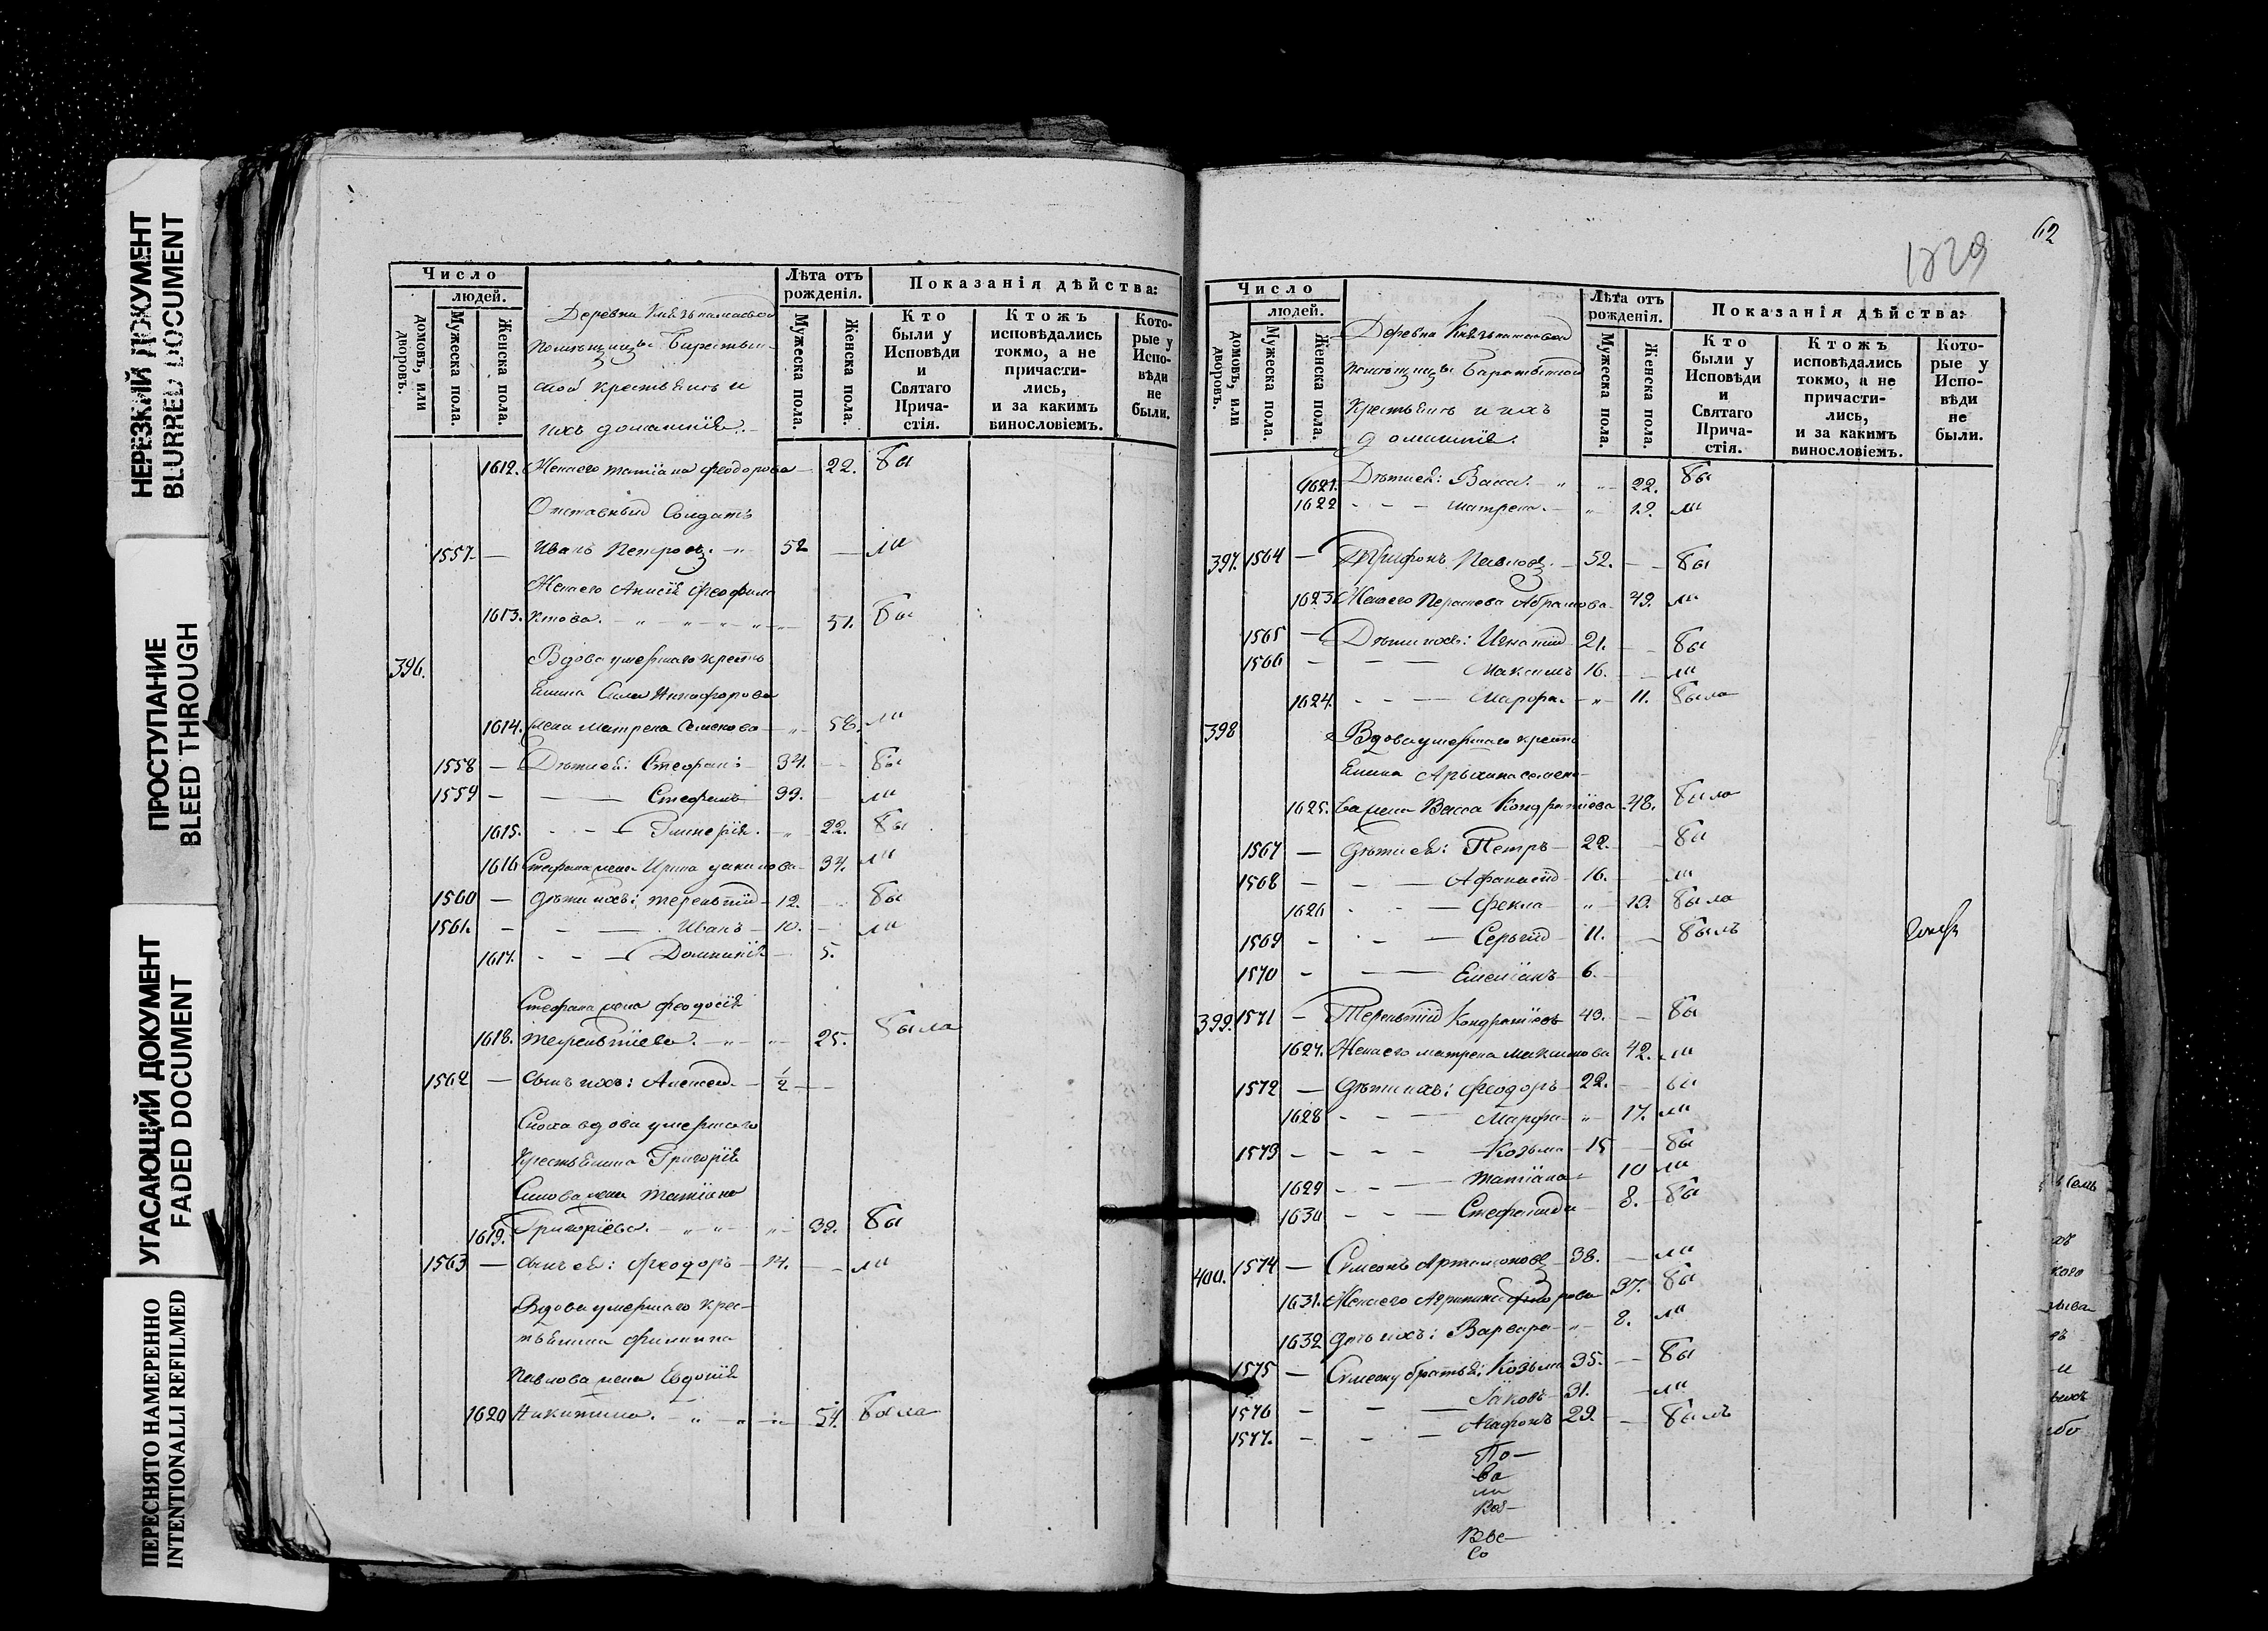 НЕРЕЗКИЙ ДОКУМЕНТ
BLURRED DOCUMENT
ПРОСТУПАНИЕ
BLEED THROUGH
УГАСАЮЩИЙ ДОКУМЕНТ
FADED DOCUMENT
ПЕРЕСНЯТО НАМЕРЕННО
INTENTIONALLI REFILMED
Число
людей.
домовъ, или дворовъ.
Мужеска пола.
Женска пола.
Деревни
помѣщицы
крестьянъ и
ихъ домашнія.
Лѣта отъ рожденія.
Мужеска пола.
Женска пола.
Показанія дѣйства:
Кто были у Исповѣди и Святаго Прича-стія.
Ктожъ исповѣдались токмо, а не причасти-лись, и за какимъ винословіемъ.
Кото-рые у Испо-вѣди не были.
1612. Жена его Татіана Феодорова 22. бы
Отставный Солдатъ
1557 — Иванъ Петровъ. 52 — ли
Жена его Анисія Феофила
1613. ктова. 51. бы
396. Вдова умершаго кресть
янина Силы Никифорова
1614. жена Матрена Семенова 58. ли
1558 — Дѣти ея: Стефанъ 34. бы
1559 — Стефанъ 33. ли
1615. Гликерія. 22. бы
1616 Стефана жена Ирина 34. ли
1560 — Дѣти ихъ: Терентій 12. бы
1561. — Иванъ 10. ли
1617. Домникія 5.
Стефана жена Феодосія
1618. Терентіева. 25. была
1562 — Сынъ ихъ: Алексей. 1/2
Сноха вдова умершаго
крестьянина Григорія
Силова жена Татіана
1619. Григоріева. 32. бы
1563 — Сынъ ея: Феодоръ 14. ли
Вдова умершаго крес-
тьянина Филиппа
Павлова жена Евдокія
1620 Никитина. 54. была
62
1829
Число
людей.
домовъ, или дворовъ.
Мужеска пола.
Женска пола.
Деревни
помѣщицы
крестьянъ и ихъ
домашнія.
Лѣта отъ рожденія.
Мужеска пола.
Женска пола.
Показанія дѣйства:
Кто были у Исповѣди и Святаго Прича-стія.
Ктожъ исповѣдались токмо, а не причасти-лись, и за какимъ винословіемъ.
Кото-рые у Испо-вѣди не были.
1621. Дѣти ея: Васса. 22. бы
1622 Матрена. 12. ли
397. 1564 — Трифонъ Павловъ. 52. бы
1623 Жена его Параскева Абрамова 49. ли
1565 — Дѣти ихъ: Игнатій 21. бы
1566 — Максимъ 16. ли
1624. Марфа. 11. была
398 Вдова умершаго кресть
янина семено-
1625. ва жена Васса Кондратіева 48. была
1567 — Дѣти ея: Петръ 22. бы
1568 — Афанасій 16. ли
1626 Фекла 13. была
1569 — Сергій 11. былъ
1570 — Емеліанъ 6.
399. 1571 — Терентій Кондратіевъ 43. бы
1627. Жена его Матрена Максимова 42. ли
1572 — Дѣти ихъ: Феодоръ 22. бы
1628 Марфа 17. ли
1573 — Козьма 15 бы
1629 Татіана 10 ли
1630 Стефанида 8. бы
400. 1574 — Симеонъ Артамоновъ 38. ли
1631. Жена его Агрипина 37. бы
1632 Дочь ихъ: Варвара 8. ли
1575 — Симеону братья: Козьма 35. бы
1576 — Іаковъ 31. ли
1577. — Агафонъ 29. былъ
По-
ва